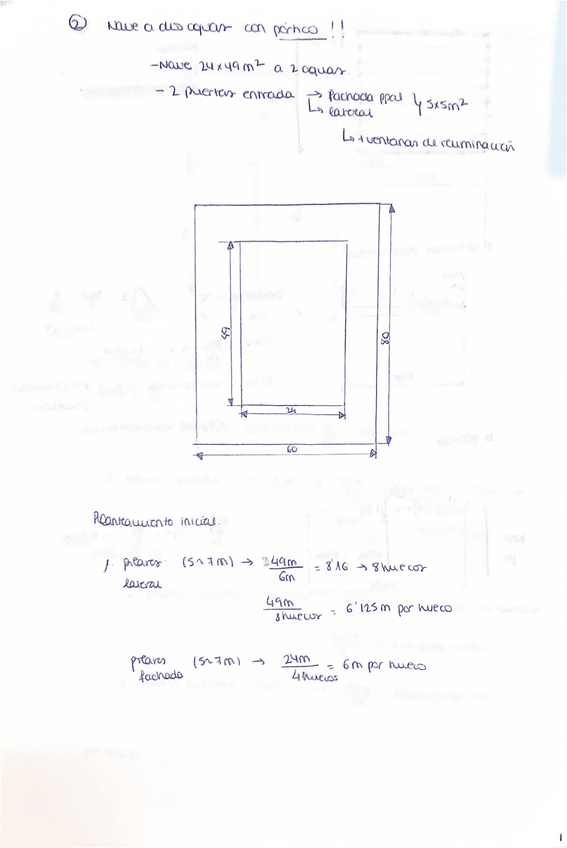 ② Nave a dos aguas con pórtico !!
- Nave 24x49 m² a 2 aguas.
- 2 puertas entrada → fachada ppal
↳ lateral } 5x5m²
↳ + ventanas de iluminación
49
80
24
60
Planteamiento inicial.
1. pilares (5~7m) → 49m / 6m = 8'16 → 8 huecos
lateral
49m / 8 huecos = 6'125 m por hueco
pilares (5~7m) → 24m / 4 huecos = 6 m por hueco
fachada
1